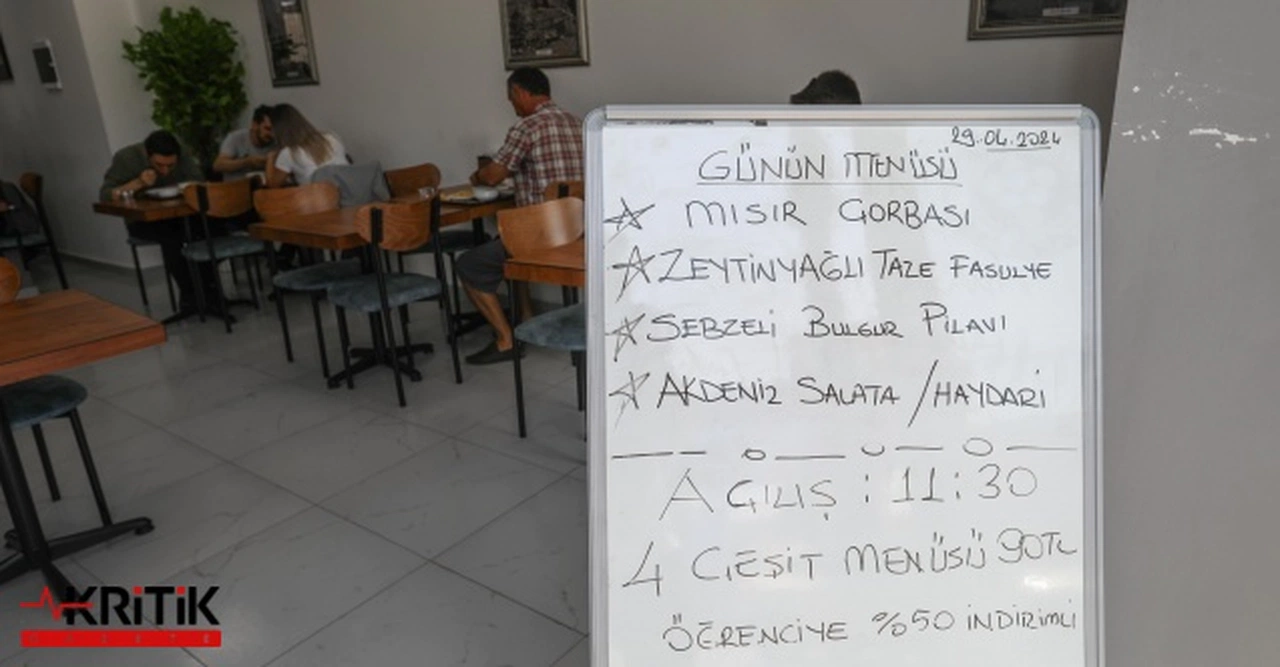 29.04.2024
GÜNÜN MENÜSÜ
☆ MISIR ÇORBASI
☆ ZEYTİNYAĞLI TAZE FASULYE
☆ SEBZELİ BULGUR PİLAVI
☆ AKDENİZ SALATA / HAYDARİ
AÇILIŞ : 11:30
4 ÇEŞİT MENÜSÜ 90TL
ÖĞRENCİYE %50 İNDİRİMLİ
KRİTİK
GAZETE